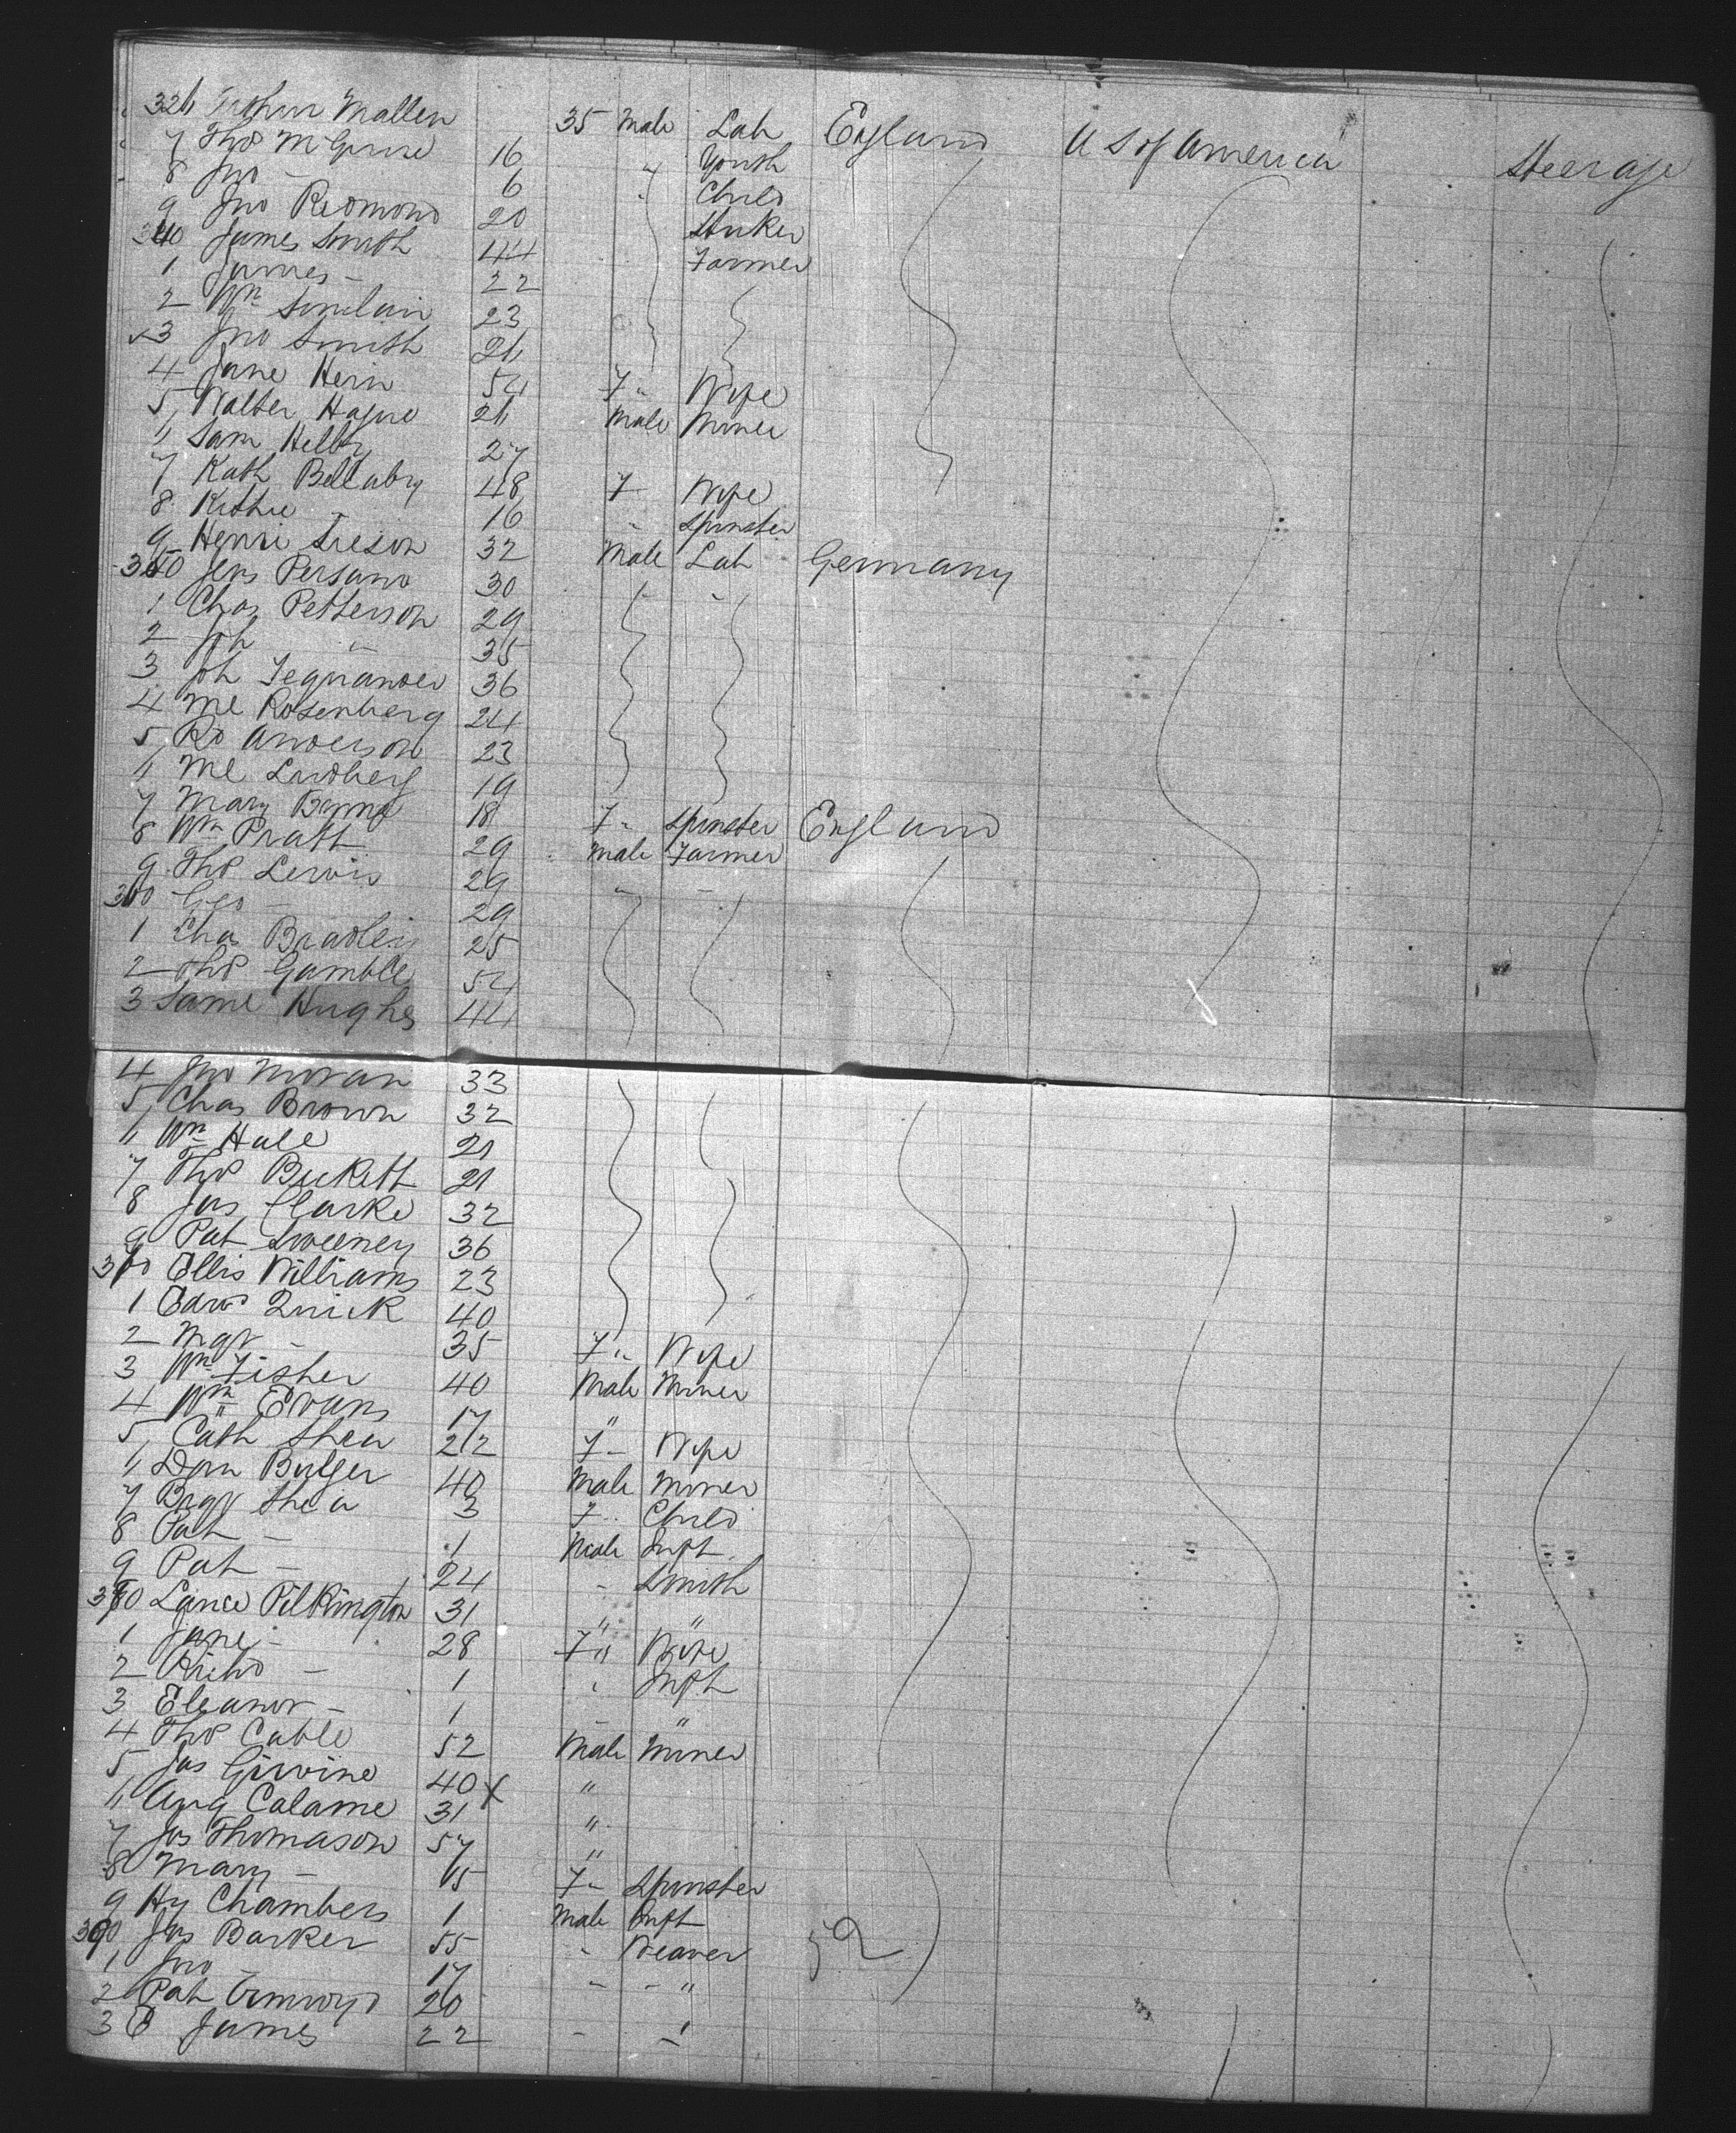 326 Arthur Mallen 35 Male Lab England U S of America Steerage
7 Thos McGuire 16 " Youth
8 Jno - 6 " Child
9 Jno Redmond 20 Stoker
340 James Smith 44 Farmer
1 James - 22
2 Wm Sinclair 23
3 Jno Smith 26
4 Jane Hern 54 F " Wife
5 Walter Hague 26 Male Miner
6 Sam Helby 27
7 Kath Bellaby 48 F Wife
8 Kathe - 16 " Spinster
9 Henri 32 Male Lab Germany
350 Jens Persano 30 " "
1 Chas Petterson 29
2 Joh " 35
3 Joh 36
4 Ml Rosenberg 24
5 Rd Anderson 23
6 Ml Lindberg 19
7 Mary Byrne 18 F " Spinster England
8 Wm Pratt 29 Male Farmer
9 Thos Lewis 29 " "
360 Geo - 29
1 Chas Bradley 25
2 Thos Gamble 54
3 Saml Hughes 44
4 Jno Moran 33
5 Chas Brown 32
6 Wm Hale 21
7 Thos Beckett 21
8 Jas Clarke 32
9 Pat Sweeney 36
370 Ellis Williams 23
1 Edwd Quick 40
2 Mgt - 35 F " Wife
3 Wm Fisher 40 Male Miner
4 Wm Evans 17 "
5 Cath Shea 22 F - Wife
6 Dan Bulger 40 Male Miner
7 Brgt Shea 3 F " Child
8 Pat - 1 Male Inft
9 Pat - 24 - Smith
380 Lance Pilkington 31 " "
1 Jane - 28 F " Wife
2 Richd - 1 " Inft
3 Eleanor - 1 - "
4 Thos Cable 52 Male Miner
5 Jas Girvine 40 x "
6 Aug Calame 31 "
7 Jas Thomason 57 "
8 Mary - 15 F " Spinster
9 Hy Chambers 1 Male Inft
390 Jas Barker 55 " Weaver 59
1 Jno - 17 - - "
2 Pat 20
3 E James 22 - "